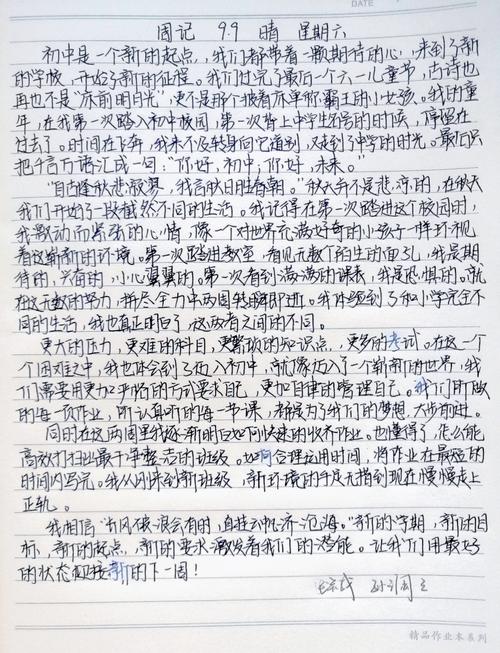 DATE
周记 9.9 晴 星期六
初中是一个新的起点,我们都带着一颗期待的心,来到了新
的学校,开始了新的征程。我们过完了最后一个六一儿童节,古诗也
再也不是“床前明月光”,更不是那个披着床单称霸王的小女孩。我的童
年,在我第一次踏入初中校园,第一次背上中学生名号的时候,停留在
过去了。时间在飞奔,我来不及转身向它道别,又走到了中学的时光。最后只
把千言万语汇成一句:“你好,初中,你好,未来。”
“自古逢秋悲寂寥,我言秋日胜春朝。”秋天并不是悲凉的,在秋天
我们开始了一段截然不同的生活。我记得在第一次踏进这个校园时,
我激动而紧张的心情,像一个对世界充满好奇的小孩子一样环视
着这崭新的环境。第一次踏进教室,看见无数个陌生的面孔,我是期
待的,兴奋的,小心翼翼的。第一次看到满满的课表,我是恐惧的。就
在这无数的努力,拼尽全力中两周转瞬即逝。我体会到了和小学完全不
同的生活,我也真正明白了这两者之间的不同。
更大的压力,更难的科目,更繁琐的知识点,更多的考试。在这一个
个困难之中,我也体会到了迈入初中,就像迈入了一个崭新的世界,我
们需要用更加严格的方式要求自己,更加自律的管理自己。我们所做
的每一项作业,所认真听的每一节课,都是为了我们的梦想,大步前进。
同时在这两周里我逐渐明白如何快速的收齐作业。也懂得了,怎么能
高效打扫出最干净整洁的班级。如何合理运用时间,将作业在最短的
时间内写完。我从刚来到新班级,新环境的手足无措到现在慢慢走上
正轨。
我相信“长风破浪会有时,直挂云帆济沧海。”新的学期,新的目
标,新的起点,新的要求激发着我们的潜能。让我们用最好
的状态迎接新的下一周!
精品作业本系列